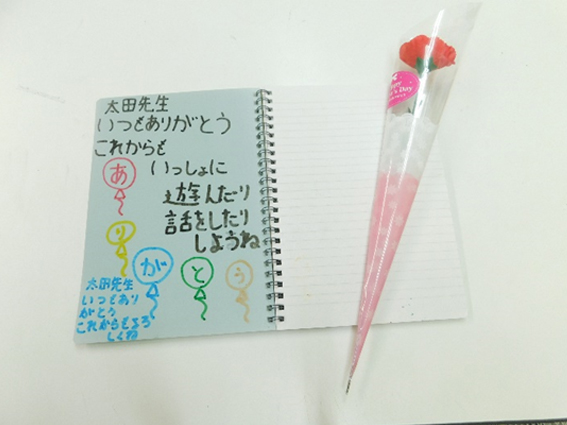 太田先生
いつもありがとう
これからも
いっしょに
遊んだり
話をしたり
しようね
あ
り
が
と
う
太田先生
いつもあり
がとう
これからもよろ
しくね
Day